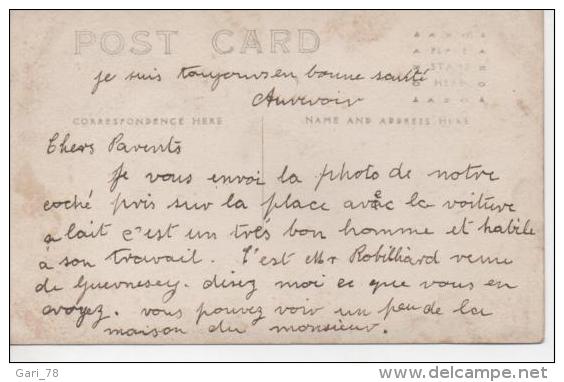 POST CARD
PLACE
STAMP
HERE
je suis toujours en bonne santé
Aurevoir
CORRESPONDENCE HERE
NAME AND ADDRESS HERE
Chers Parents
Je vous envoi la photo de notre
coché pris sur la place avec la voiture
a lait c'est un trés bon homme et habile
à son travail. C'est Mr Robilliard venue
de Guernesey. disez moi ce que vous en
avoyez. vous pouvez voir un peu de la
maison du monsieur.
Gari_78
delcampe.net